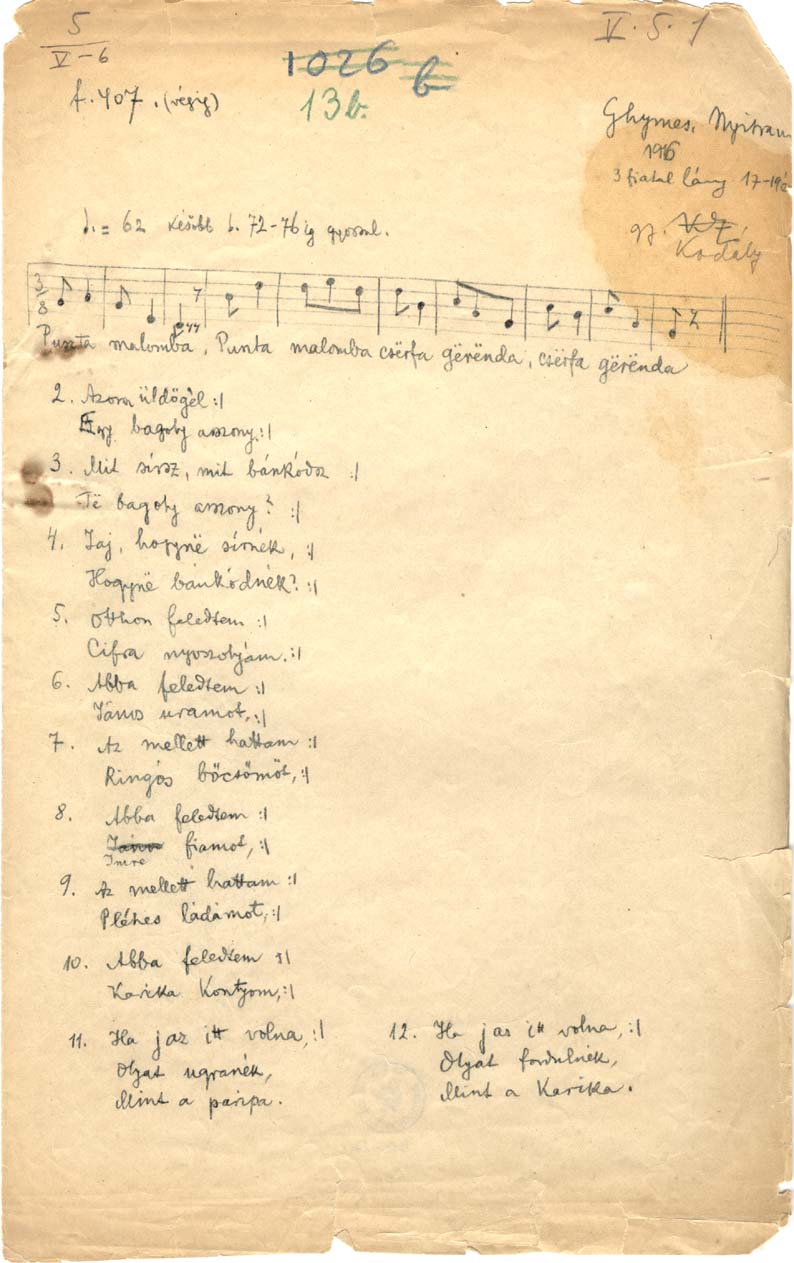 5
V-6
V. 5. 1
1026 b
13b.
f. 407. (végig)
Ghymes, Nyitram
1916
3 fiatal lány 17-19é
gy. Kodály
♩. = 62 később ♩. 72-76 ig gyorsul.
3/8
Puszta malomba, Punta malomba csërfa gërënda, csërfa gërënda
2. Azonn üldögél :|
Egy bagoly asszony :|
3. Mit sírsz, mit bánkódsz :|
Të bagoly asszony? :|
4. Jaj, hogynë sírnék, :|
Hogynë bánkódnék? :|
5. Otthon feledtem :|
Cifra nyoszolyám. :|
6. Abba feledtem :|
János uramot, :|
7. Az mellett hattam :|
Ringós bőcsőmöt, :|
8. Abba feledtem :|
János fiamot, :|
Imre
9. Az mellett hattam :|
Pléhes ládámot, :|
10. Abba feledtem :|
Karika Kontyom, :|
11. Ha jaz itt volna, :|
Olyat ugranék,
Mint a paripa.
12. Ha jas itt volna, :|
Olyat fordulnék,
Mint a Karika.